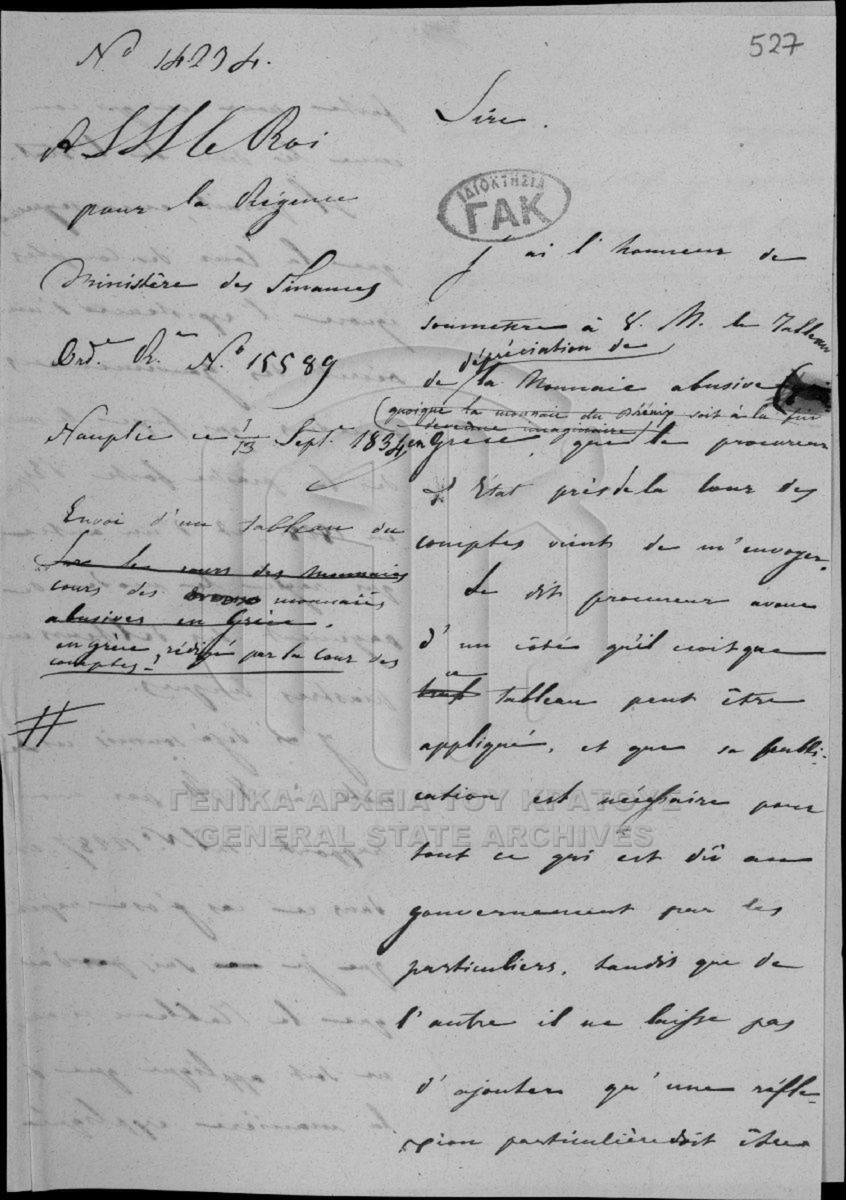 527
Nº 14234.
A S M le Roi
pour la Régence
Ministère des Finances
Ord.ce R. Nº 15589
Nauplie ce 1/13 Sept. 1834
Envoi d'un tableau du
sur les cours des monnaies
cours des monnaies
abusives en Grèce.
en grèce, rédigé par la Cour des
comptes.
#
Sire.
ΙΔΙΟΚΤΗΣΙΑ
ΓΑΚ
J'ai l'honneur de
soumettre à V. M. le Tableau
dépréciation de
de la Monnaie abusive
(quoique la monnaie du Phénix soit à la fin
devenue imaginaire)
en Grèce, que le procureur
d'Etat près de la Cour des
comptes vient de m'envoyer.
Le dit procureur avoue
d'un côté qu'il croit que
ce
tableau peut être
appliqué, et que sa publi-
cation est nécessaire pour
tout ce qui est dû au
gouvernement par les
particuliers, tandis que de
l'autre il ne laisse pas
d'ajouter qu'une réfle-
xion particulière doit être
ΓΕΝΙΚΑ ΑΡΧΕΙΑ ΤΟΥ ΚΡΑΤΟΥΣ
GENERAL STATE ARCHIVES